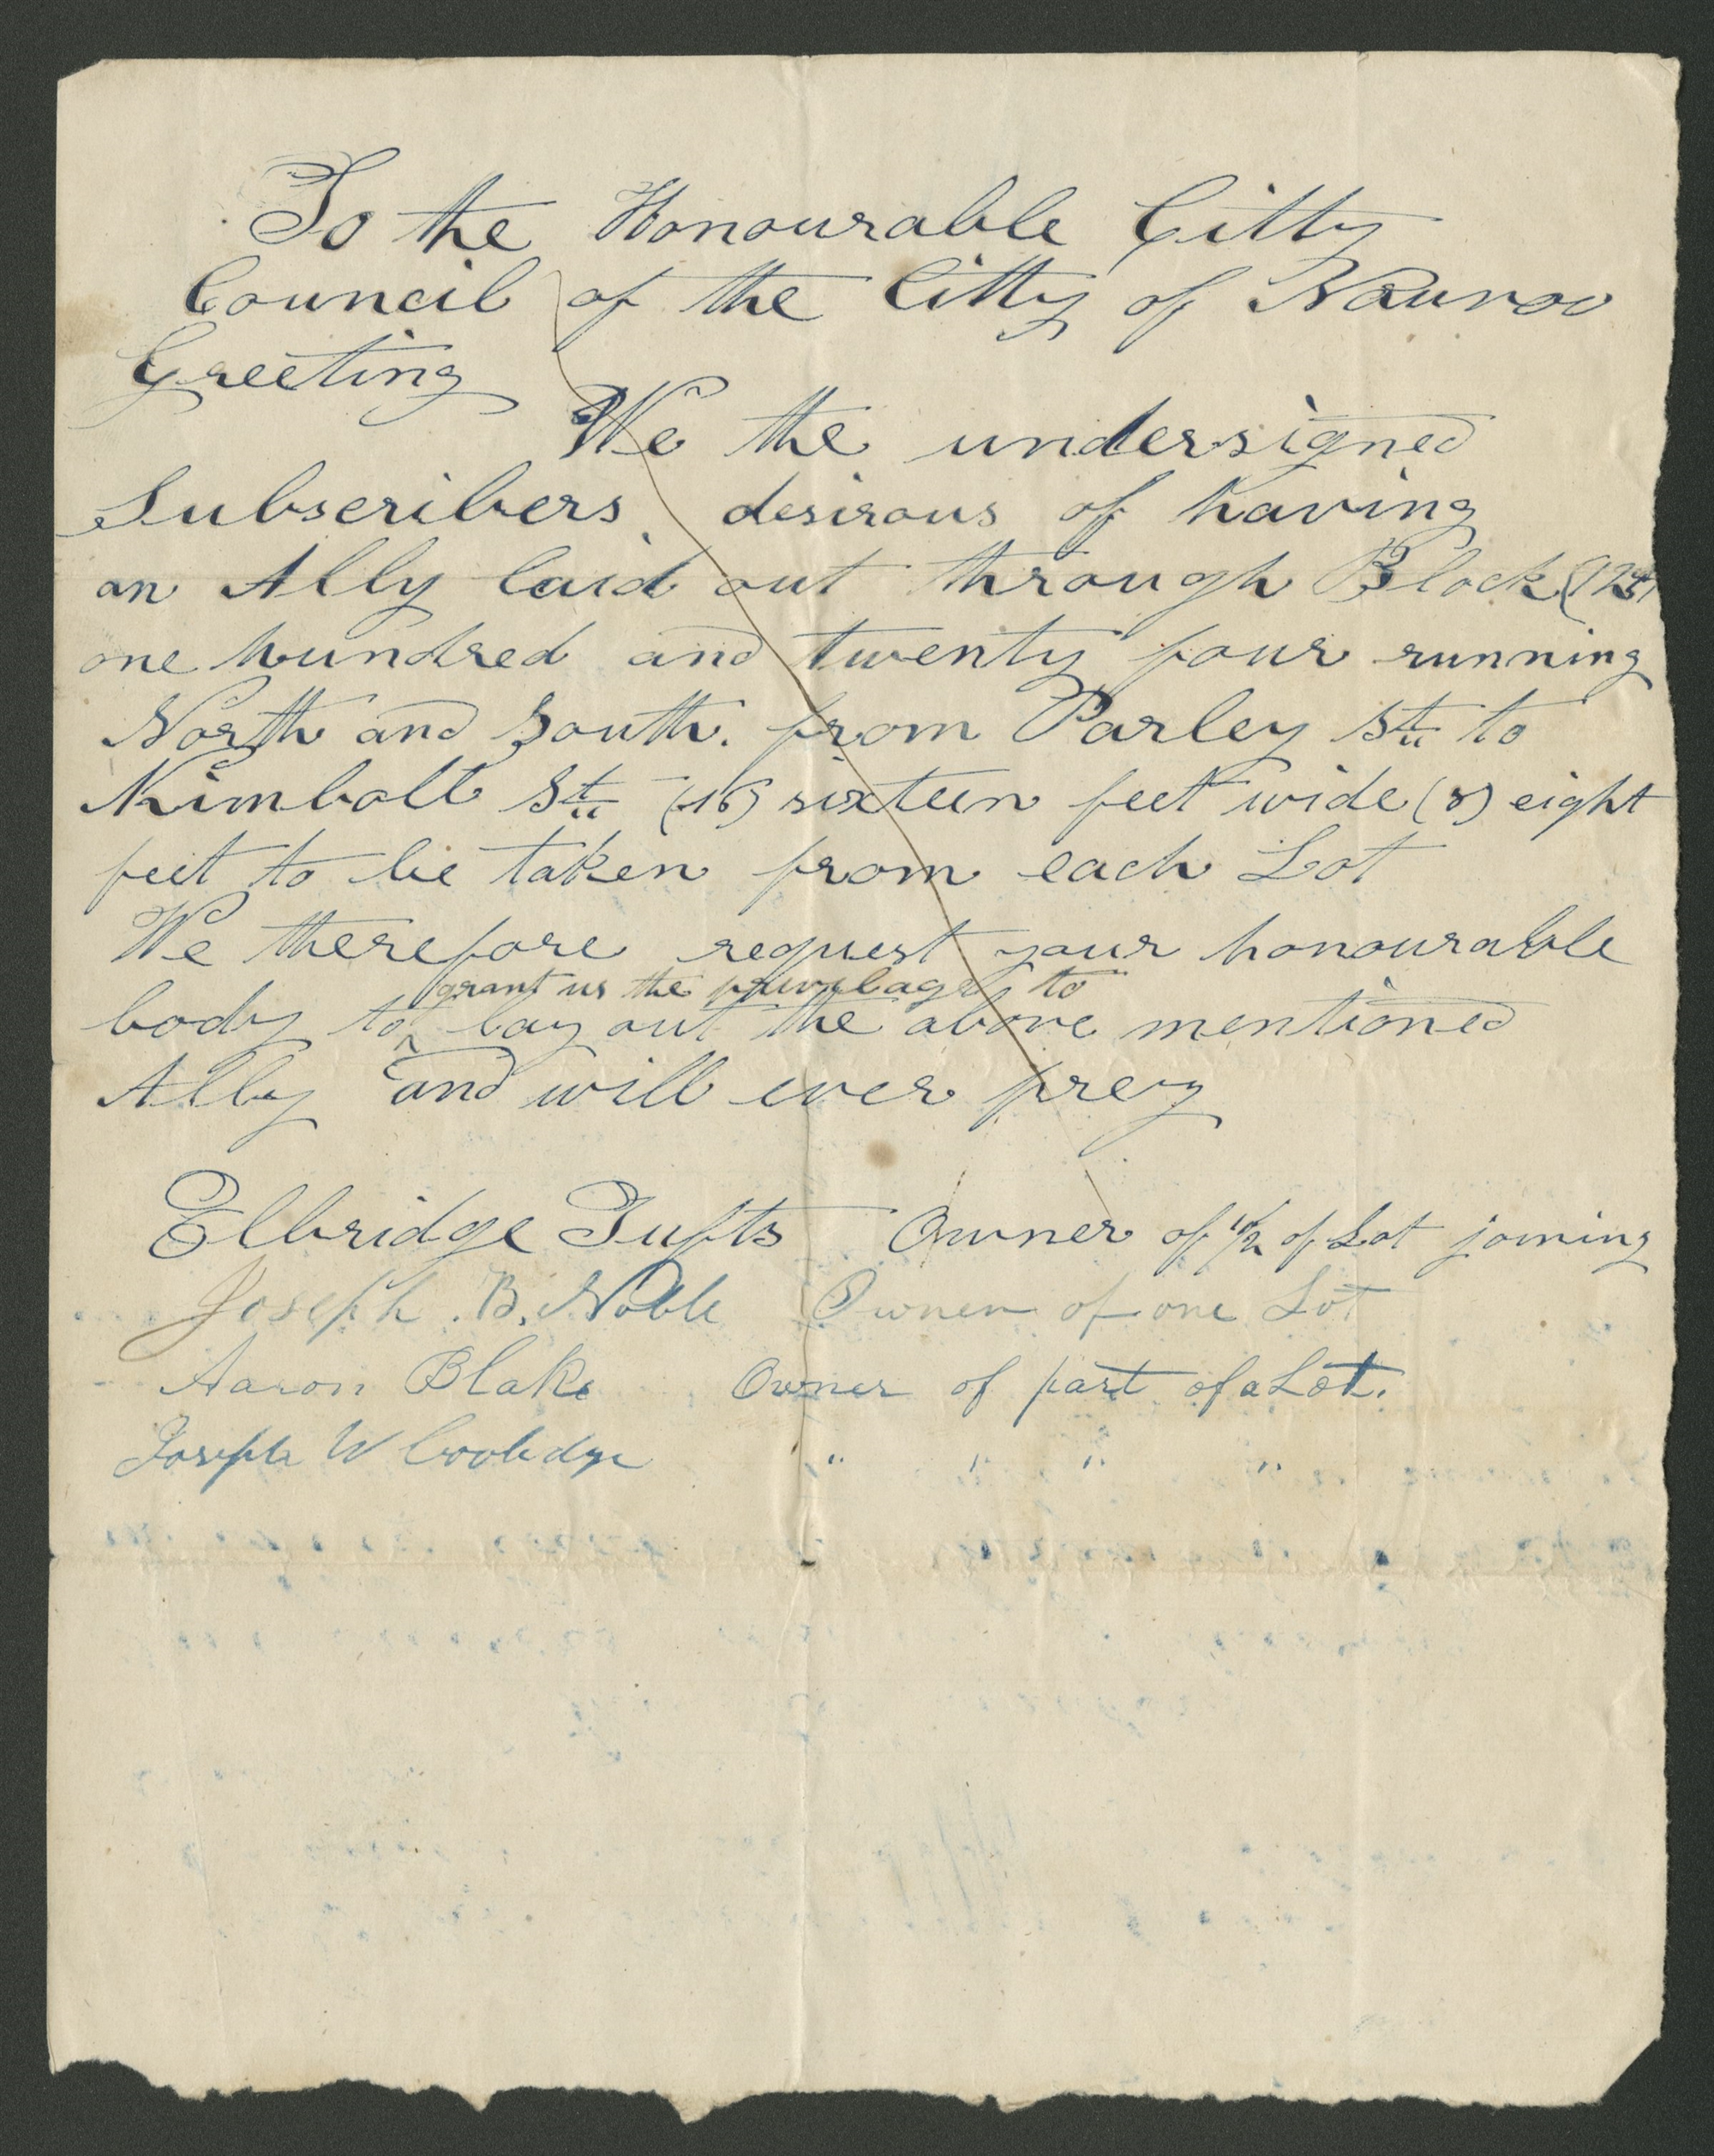 To the Honourable Citty
Council of the Citty of Nauvoo
Greeting
We the undersigned
Subscribers desirous of having
an Ally laid out through Block (124)
one hundred and twenty four running
North and South. from Parley St. to
Kimball St. (16) sixteen feet wide (8) eight
feet to be taken from each Lot
We therefore request your honourable
grant us the privelage to
body to ^ lay out the above mentioned
Ally and will ever prey
Elbridge Tufts Owner of 1/2 of Lot joining
Joseph. B. Noble Owner of one Lot
Aaron Blake Owner of part of a Lot.
Joseph W Coolidge " " " "